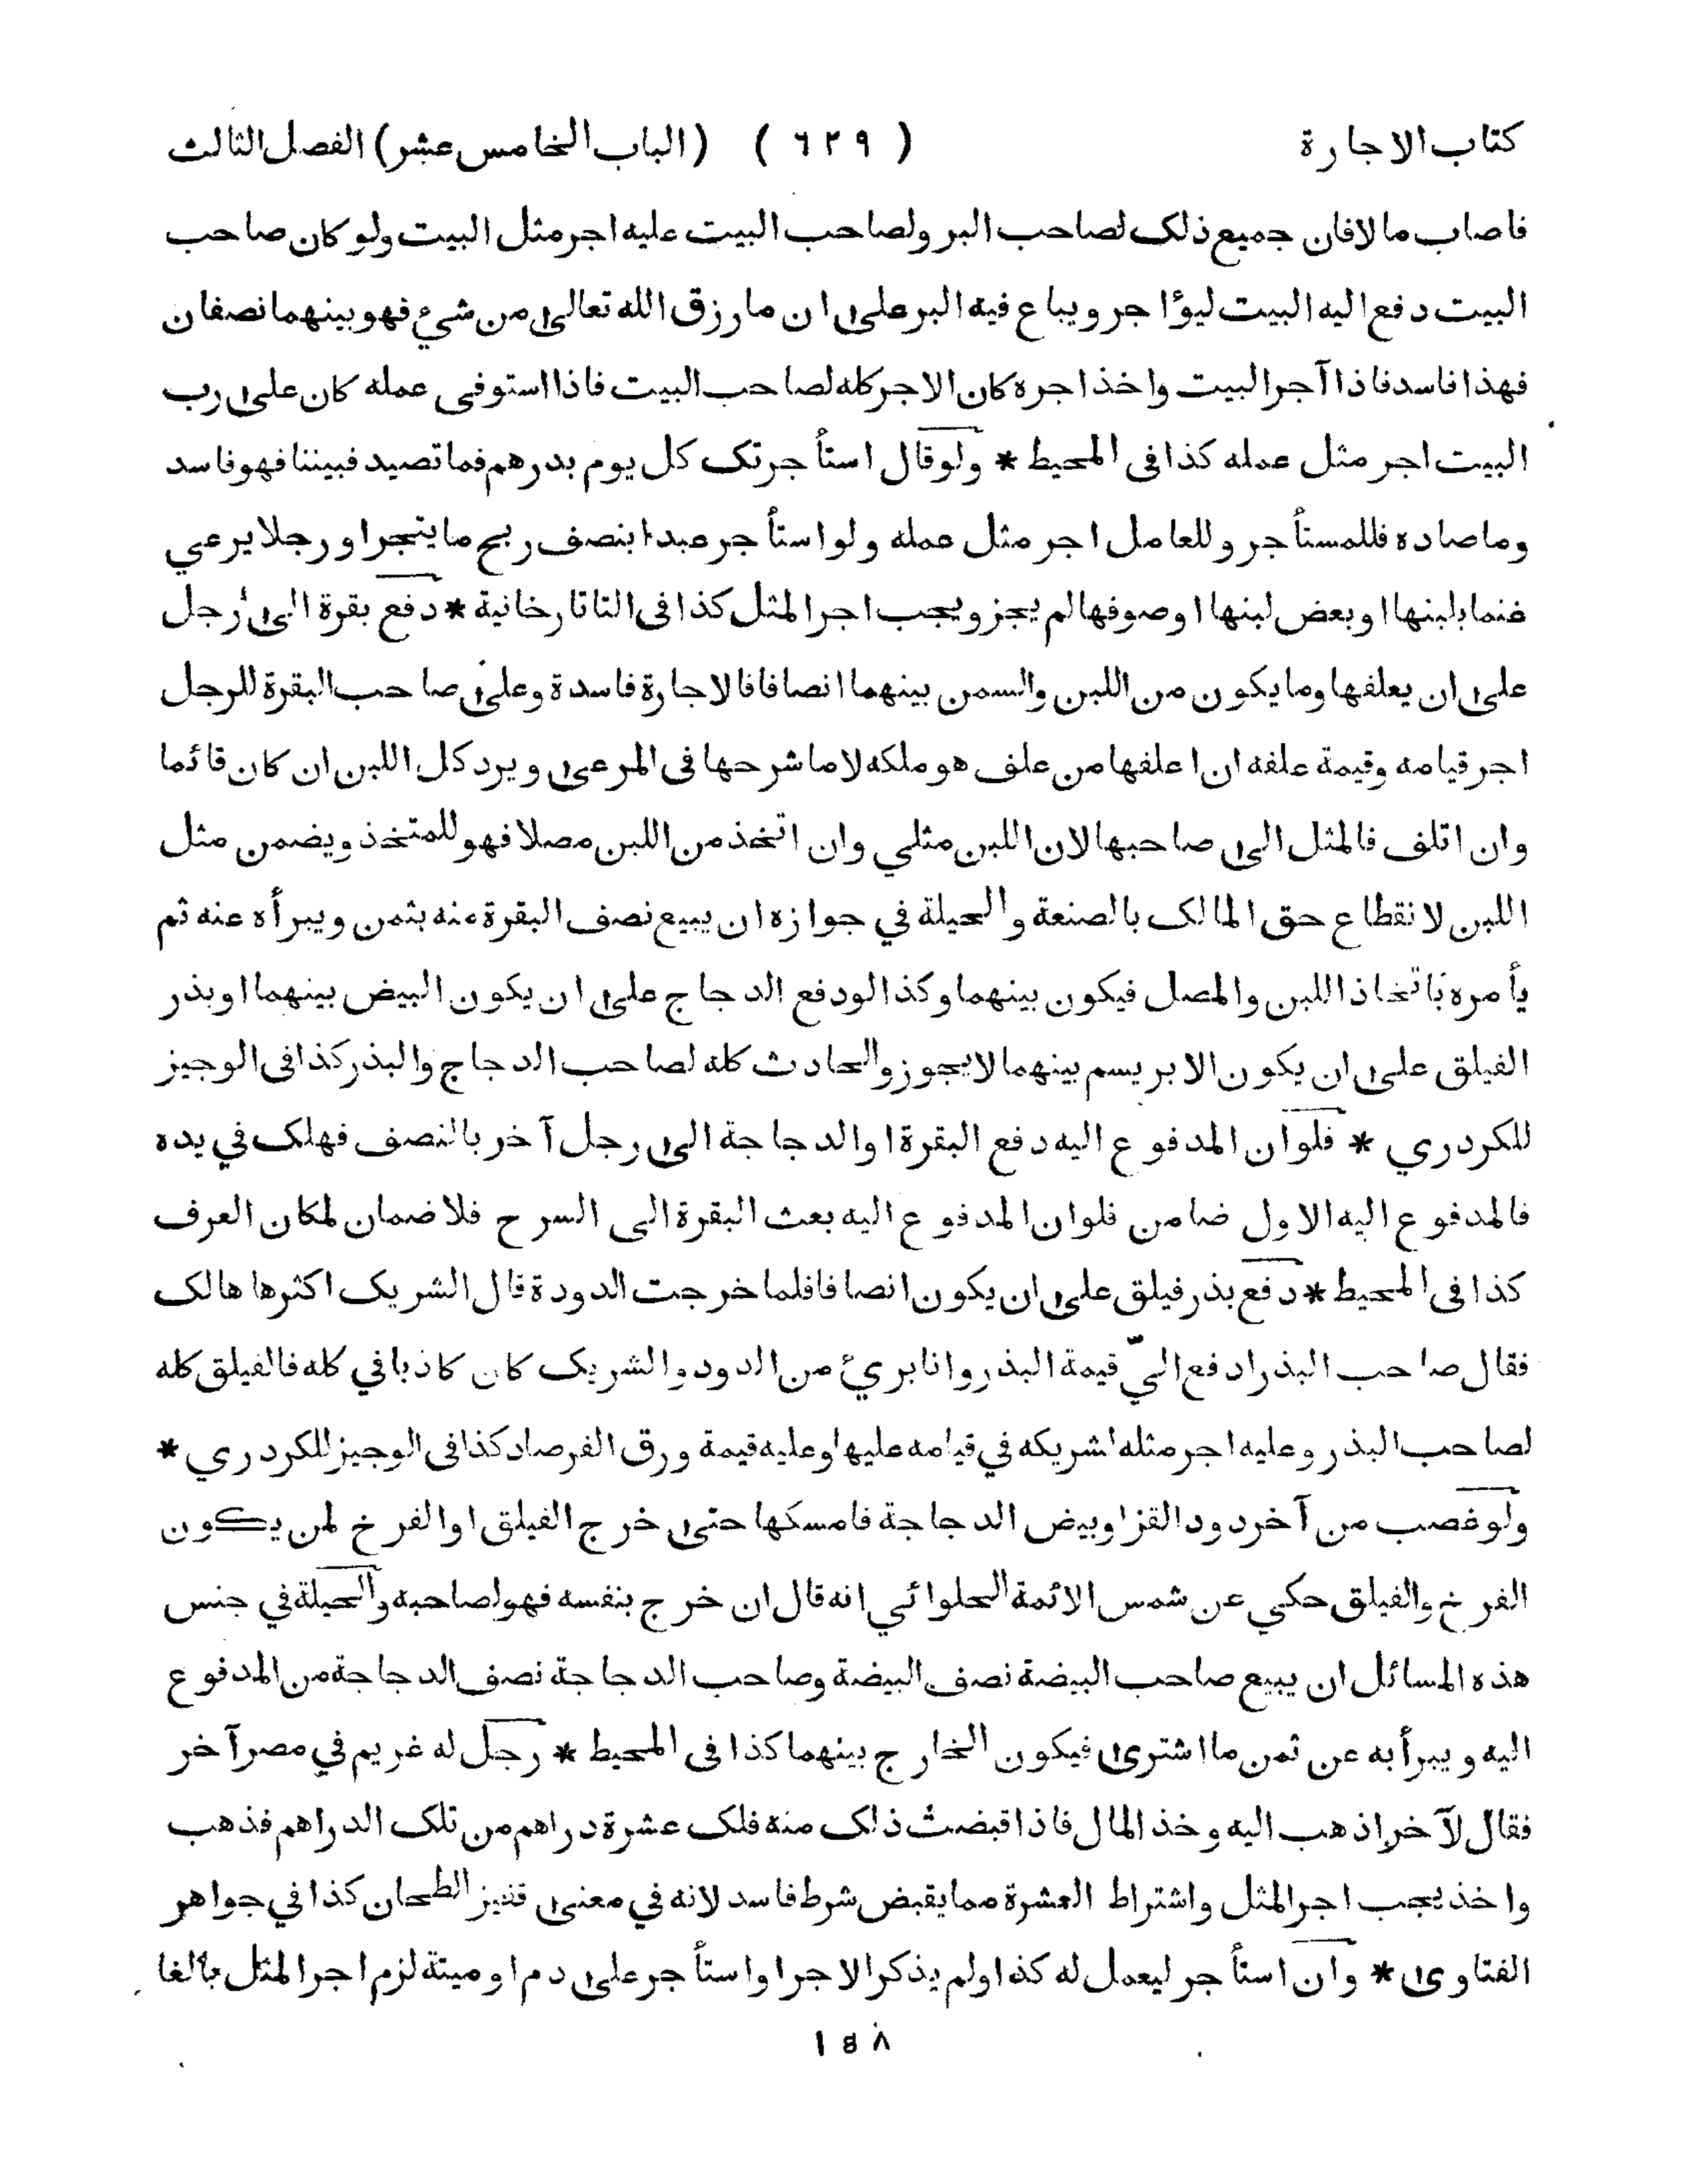 كتاب الاجارة ( ٦٢٩ ) (الباب الخامس عشر) الفصل الثالث
فاصاب مالا فان جميع ذلك لصاحب البر ولصاحب البيت عليه اجر مثل البيت ولو كان صاحب
البيت دفع اليه البيت ليؤاجر ويباع فيه البر على ان ما رزق الله تعالى من شيء فهو بينهما نصفان
فهذا فاسد فاذا آجر البيت واخذ اجره كان الاجر كله لصاحب البيت فاذا استوفى عمله كان على رب
البيت اجر مثل عمله كذا فى المحيط * ولو قال استأجرتك كل يوم بدرهم فما تصيد فبيننا فهو فاسد
وما صاده فللمستأجر وللعامل اجر مثل عمله ولو استأجر عبدا بنصف ربح ما يتجر او رجلا يرعي
غنما بلبنها او بعض لبنها او صوفها لم يجز ويجب اجر المثل كذا فى التاتارخانية * دفع بقرة الى رجل
على ان يعلفها وما يكون من اللبن والسمن بينهما انصافا فالاجارة فاسدة وعلى صاحب البقرة للرجل
اجر قيامه وقيمة علفه ان اعلفها من علف هو ملكه لا ما شرحها فى المرعى ويرد كل اللبن ان كان قائما
وان اتلف فالمثل الى صاحبها لان اللبن مثلي وان اتخذ من اللبن مصلا فهو للمتخذ ويضمن مثل
اللبن لانقطاع حق المالك بالصنعة والحيلة في جوازه ان يبيع نصف البقرة منه بثمن ويبرأه عنه ثم
يأمره باتخاذ اللبن والمصل فيكون بينهما وكذا لو دفع الدجاج على ان يكون البيض بينهما او بذر
الفيلق على ان يكون الابريسم بينهما لا يجوز والحادث كله لصاحب الدجاج والبذر كذا فى الوجيز
للكردري * فلو ان المدفوع اليه دفع البقرة او الدجاجة الى رجل آخر بالنصف فهلك في يده
فالمدفوع اليه الاول ضامن فلو ان المدفوع اليه بعث البقرة الى السرح فلا ضمان لمكان العرف
كذا فى المحيط * دفع بذر فيلق على ان يكون انصافا فلما خرجت الدودة قال الشريك اكثرها هالك
فقال صاحب البذر ادفع اليّ قيمة البذر وانا بريئ من الدود والشريك كان كاذبا في كله فالفيلق كله
لصاحب البذر وعليه اجر مثله لشريكه في قيامه عليها وعليه قيمة ورق الفرصاد كذا فى الوجيز للكردري *
ولو غصب من آخر دود القز او بيض الدجاجة فامسكها حتى خرج الفيلق او الفرخ لمن يكون
الفرخ والفيلق حكي عن شمس الائمة الحلوائي انه قال ان خرج بنفسه فهو لصاحبه والحيلة في جنس
هذه المسائل ان يبيع صاحب البيضة نصف البيضة وصاحب الدجاجة نصف الدجاجة من المدفوع
اليه ويبرأ به عن ثمن ما اشترى فيكون الخارج بينهما كذا فى المحيط * رجل له غريم في مصر آخر
فقال لآخر اذهب اليه وخذ المال فاذا قبضت ذلك منه فلك عشرة دراهم من تلك الدراهم فذهب
واخذ يجب اجر المثل واشتراط العشرة مما يقبض شرط فاسد لانه في معنى قفيز الطحان كذا في جواهر
الفتاوى * وان استأجر ليعمل له كذا ولم يذكر الاجر او استأجر على دم او ميتة لزم اجر المثل بالغا